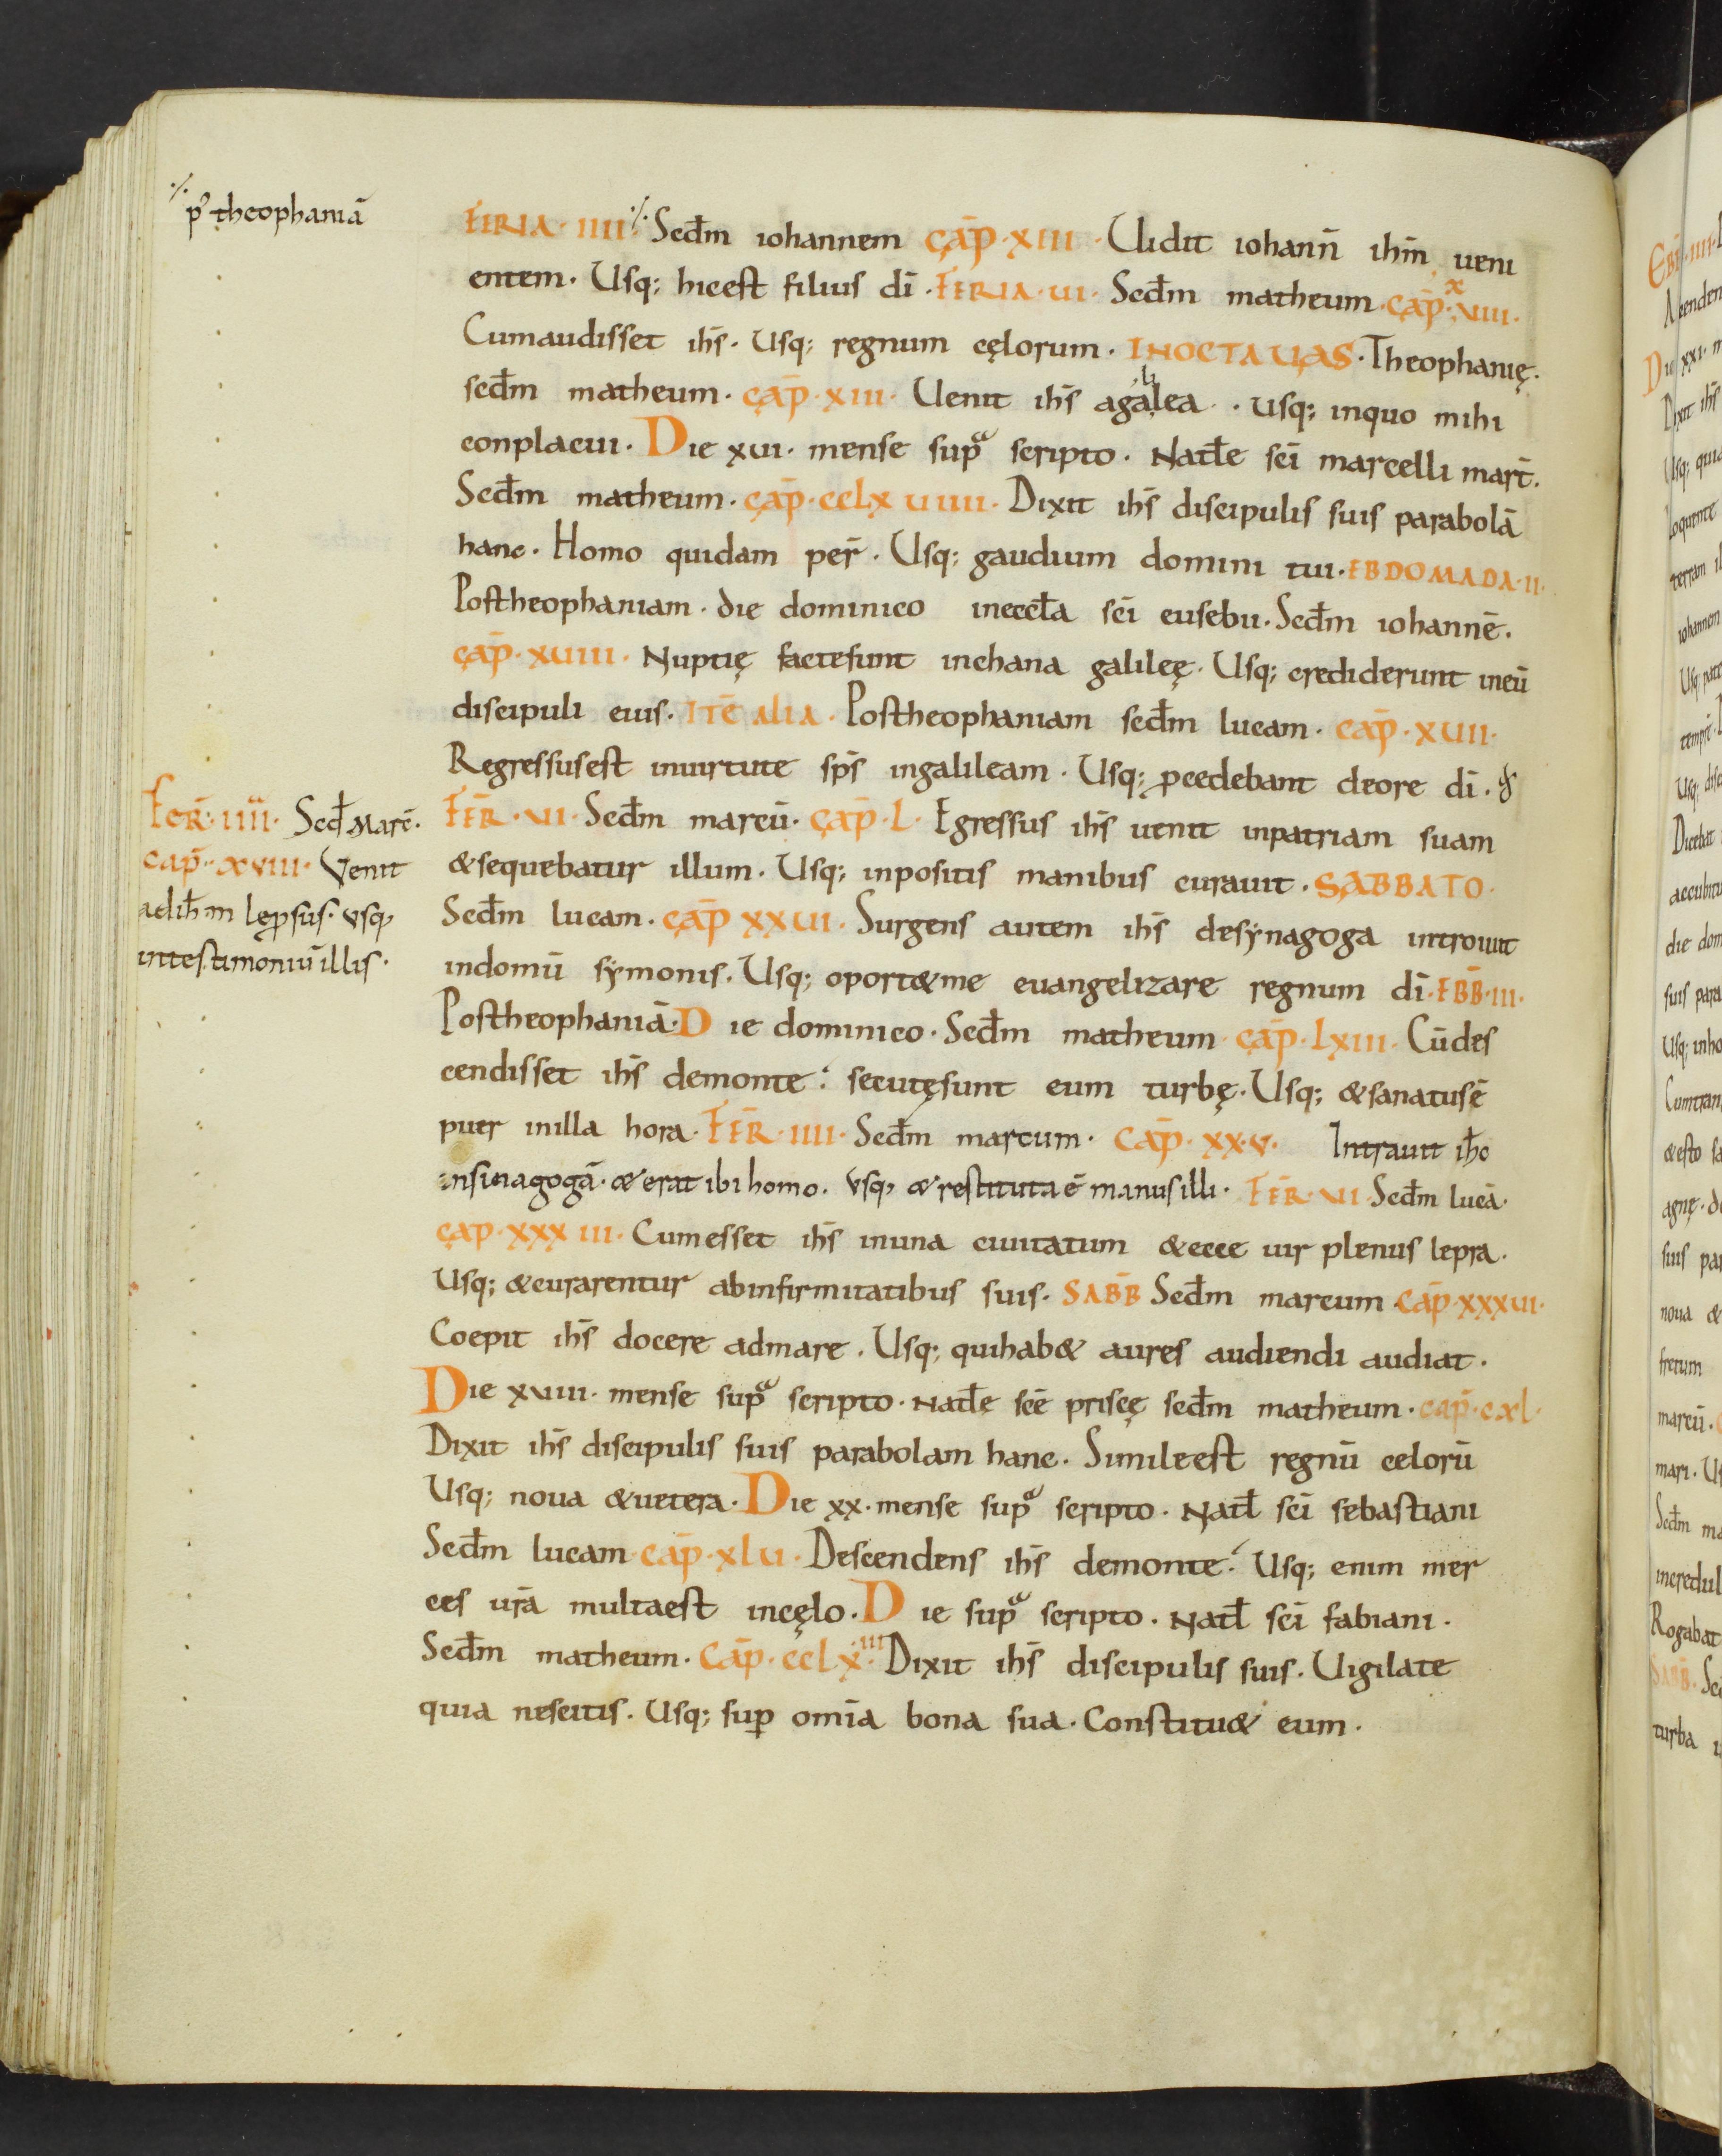 ⁒ p᷒ theophaniā
FERIA · IIII ⁒ Scd̄m iohannem CAP̄ · XIII · Uidit iohan̄n ihm̄ ueni
entem · Usq; hicest filius dī · FERIA · UI · Scd̄m matheum · CAP̄ · XUIII ·
Cumaudisset ihs̄ · Usq; regnum cęlorum · INOCTAUAS · Theophanię ·
scd̄m matheum · CAP̄ · XIII · Uenit ihs̄ agalilea · usq; inquo mihi
conplacui · Die xui · mense supᵃ scripto · Natl̄e scī marcelli mart̄ ·
Scd̄m matheum · CAP̄ · CCLXUIIII · Dixit ihs̄ discipulis suis parabolā
hanc · Homo quidam per̄ · Usq; gaudium domini tui · EBDOMADA · II ·
Postheophaniam · die dominico inecclā scī eusebii · Scd̄m iohannē ·
CAP̄ · XUIIII · Nuptię factesunt inchana galileę · Usq; crediderunt ineū
discipuli eius · ITĒ ALIA · Postheophaniam scd̄m lucam · CAP̄ · XUII ·
Regressusest inuirtute sp̄s ingalileam · Usq; ꝓcedebant deore dī ·
Fer̄ · IIII · Scd̄ Marc̄ ·
cap̄ · XVIII · Venit
adih̄m lep̱sus · vsq,
intestimoniū illis ·
FER̄ · VI · Scd̄m marcū · CAP̄ · L · Egressus ihs̄ uenit inpatriam suam
&sequebatur illum · Usq; inpositis manibus curauit · SABBATO ·
Scd̄m lucam · CAP̄ XXUI · Surgens autem ihs̄ desynagoga introiuit
indomū symonis · Usq; oport&me euangelizare regnum dī · EBB̄ · III ·
Postheophaniā · Die dominico · Scd̄m matheum CAP̄ · LXIII · Cūdes
cendisset ihs̄ demonte · secutęsunt eum turbę · Usq; &sanatusē
puer inilla hora · FER̄ · IIII · Scd̄m marcum · CAP̄ · XX·V · Intrauit ih̄c
insinagogā · & erat ibi homo · vsq, & restituta ē manus illi · FER̄ · VI · Scd̄m lucā ·
CAP · XXXIII · Cumesset ihs̄ inuna ciuitatum &ecce uir plenus lepra ·
Usq; &curarentur abinfirmitatibus suis · SABB̄ Scd̄m marcum CAP̄ · XXXUI ·
Coepit ihs̄ docere admare · Usq; quihab& aures audiendi audiat ·
Die xuiii · mense supᵃ scripto · Natl̄e scē priscę scd̄m matheum · cap̄ · cxl ·
Dixit ihs̄ discipulis suis parabolam hanc · Simileest regnū celorū
Usq; noua &uetera · Die xx · mense supᵃ scripto · Natl̄ scī sebastiani
Scd̄m lucam · CAP̄ · XLU · Descendens ihs̄ demonte · Usq; enim mer
ces ur̄a multaest incęlo · Die supᵃ scripto · Natl̄ scī fabiani ·
Scd̄m matheum · CAP̄ · CCLXIII · Dixit ihs̄ discipulis suis · Uigilate
quia nescitis · Usq; suꝑ omīa bona sua · Constitu& eum ·